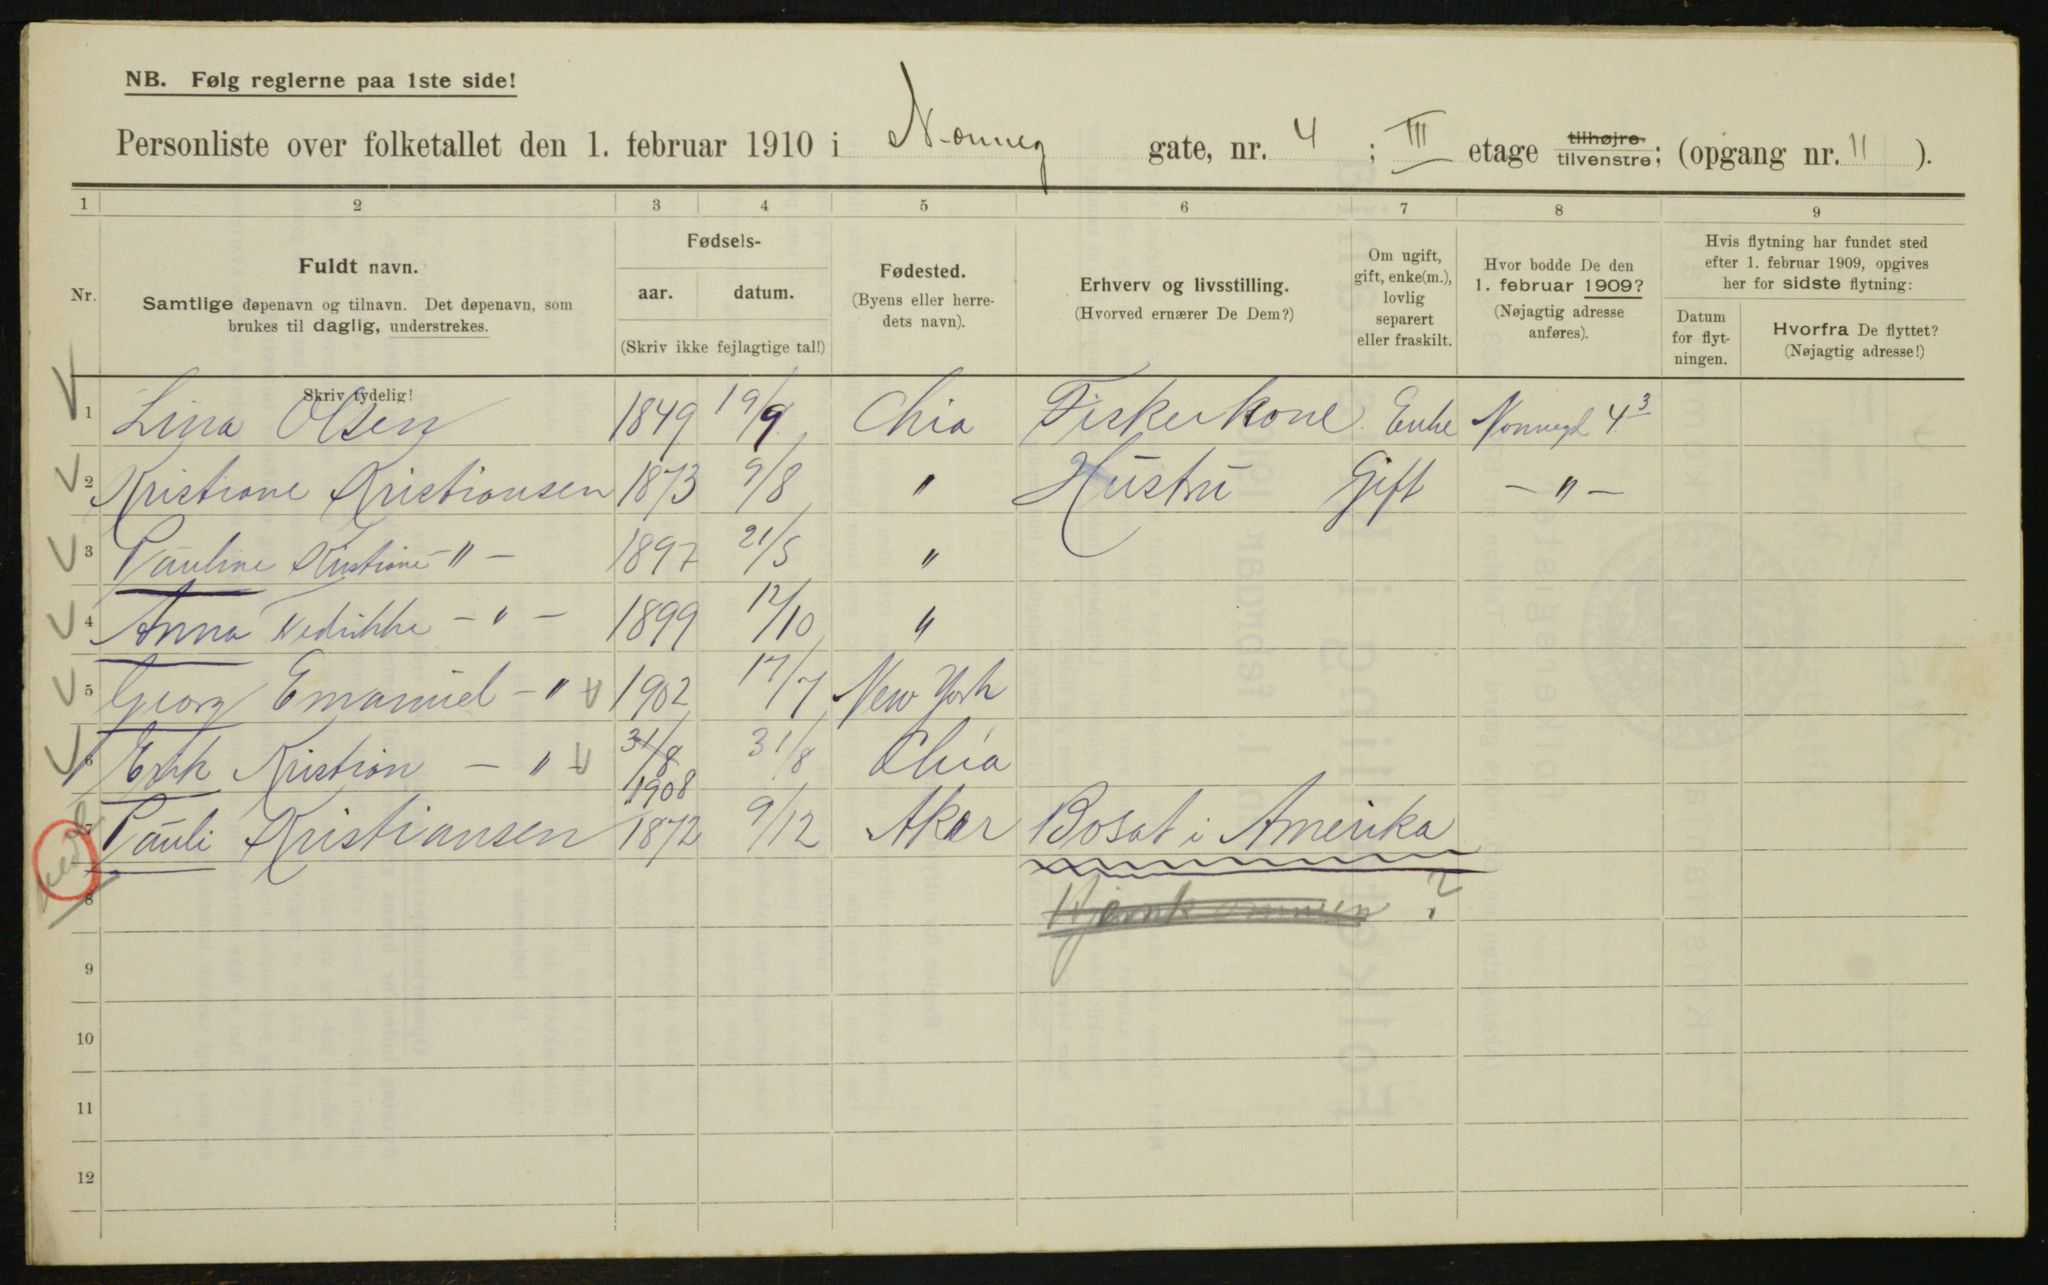 NB. Følg reglerne paa 1ste side!
Personliste over folketallet den 1. februar 1910 i Nonneg gate, nr. 4 ; III etage tilhøjre tilvenstre; (opgang nr. 11 ).
1 2 3 4 5 6 7 8 9
Nr.
Fuldt navn.
Samtlige døpenavn og tilnavn. Det døpenavn, som
brukes til daglig, understrekes.
Skriv tydelig!
Fødsels-
aar. datum.
(Skriv ikke fejlagtige tal!)
Fødested.
(Byens eller herre-
dets navn).
Erhverv og livsstilling.
(Hvorved ernærer De Dem?)
Om ugift,
gift, enke(m.),
lovlig
separert
eller fraskilt.
Hvor bodde De den
1. februar 1909?
(Nøjagtig adresse
anføres).
Hvis flytning har fundet sted
efter 1. februar 1909, opgives
her for sidste flytning:
Datum
for flyt-
ningen.
Hvorfra De flyttet?
(Nøjagtig adresse!)
1 Lina Olsen 1849 19/9 Chia Fiskerkone Enke Nonnegd 4 3
2 Kristiane Kristiansen 1873 9/8 " Hustru Gift - " -
3 Pauline Kristiane - " - 1897 21/5 "
4 Anna Fredrikke - " - 1899 12/10 "
5 Georg Emanuel - " - 1902 17/7 New York
6 Erik Kristian - " - 31/8 1908 31/8 Chia
7 Pauli Kristiansen 1872 9/12 Aker Bosat i Amerika
8 ?
9
10
11
12